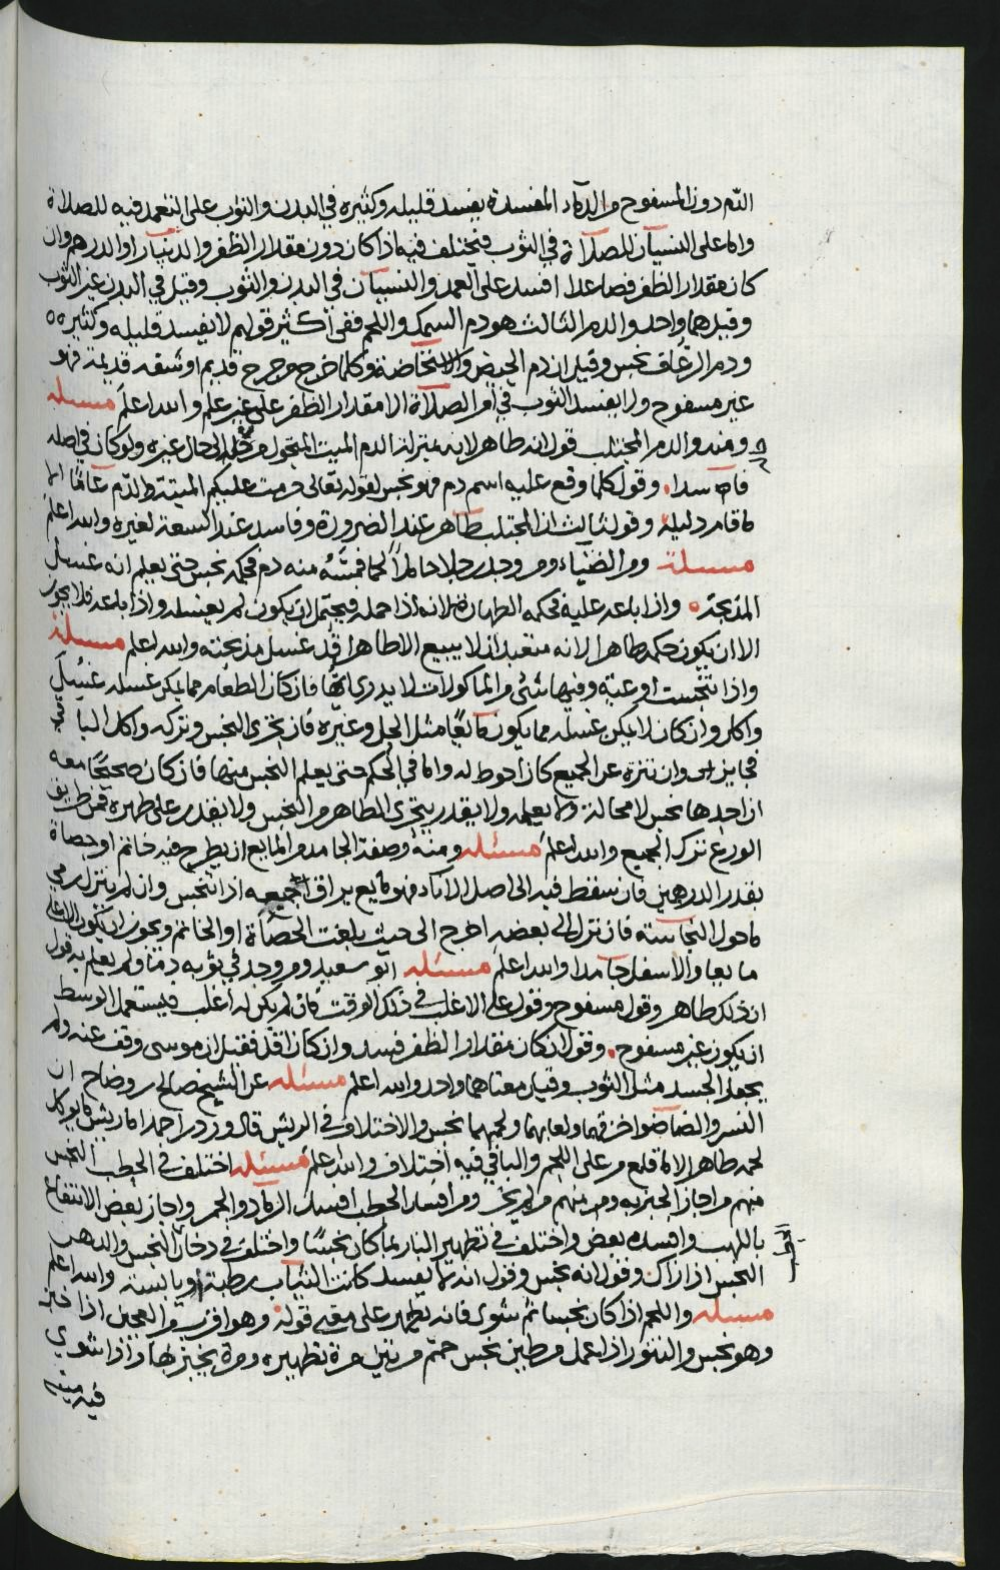 الدم دون المسفوح من الدماء المفسدة يفسد قليله وكثيره في البدن والثوب على التعمد فيه للصلاة
واما على النسيان للصلاة في الثوب فيختلف فيه اذا كان دون مقدار الظفر والدينار او الدرهم وان
كان مقدار الظفر فصاعدا افسد على العمد والنسيان في البدن والثوب وقيل في البدن غير الثوب
وقيل هما واحد والدم الثالث هو دم السمك واللحم ففي اكثر قولهم لا يفسد قليله وكثيره
ودم الرعاف نجس وقيل ان دم الحيض والاستحاضة وكلما خرج من جرح قديم او شقه قديمة فهو
غير مسفوح ولا يفسد الثوب في امر الصلاة الا مقدار الظفر على غير علم والله اعلم مسئلة
ومنه والدم المجتلب قول انه طاهر لانه بمنزلة الدم الميت المتحول من حال الى حال غيره ولو كان في اصله
فاسدا وقول كلما وقع عليه اسم دم فهو نجس لقوله تعالى حرمت عليكم الميتة والدم عاما الا
ما قام دليله وقول ثالث ان المجتلب طاهر عند الضرورة وفاسد عند السعة لغيره والله اعلم
مسئلة ومن الضياء ومن وجد رجلا حاملا لحما فمسه منه دم فحكمه نجس حتى يعلم انه غسل
المذبحة واذا باعد عليه فحكمه الطهارة لانه اذا حمله فيحتمل ان يكون لم يغسله واذا باعه فلا يجوز
الا ان يكون حكمه طاهرا لانه متعبد ان لا يبيع الا طاهرا قد غسل مذبحته والله اعلم مسئلة
واذا تنجست اوعية وفيها شيء من الماكولات لا يدرى ايها فان كان الطعام مما يمكن غسله غسل
واكل وان كان لا يمكن غسله مما يكون مائعا مثل الخل وغيره فان تحرى النجس وتركه واكل الباقي
فجايز وان تنزه عن الجميع كان احوط له واما في الحكم حتى يعلم النجس منها فان كان صحيحا معه
ان احدها نجس لا محالة ولا يعلمه ولا يقدر يتحرى الطاهر من النجس ولا يقدر على طهره فمن طريق
الورع ترك الجميع والله اعلم مسئلة ومنه وصفة الجامد من المايع ان يطرح فيه خاتم او حصاة
بقدر الدرهمين فان سقط فيه الى اصل الاناء فهو مايع يراق جميعه اذا تنجس وان لم ينزل رمي
ما حول النجاسة فان نزل الى بعضه اخرج الى حيث بلغت الحصاة او الخاتم ويجوز ان يكون الاعلى
مايعا والاسفل جامدا والله اعلم مسئلة ابو سعيد ومن وجد في ثوبه دما ولم يعلم به قول
ان ذلك طاهر وقول مسفوح وقول على الاغلب في ذلك الوقت فان لم يكن له اغلب فيستعمل الوسط
ان يكون غير مسفوح وقول ان كان مقدار الظفر فسد وان كان اقل فقيل ان موسى وقف عنه ولم
يجعل الجسد مثل الثوب وقيل معناهما واحد والله اعلم مسئلة عن الشيخ صالح بن وضاح ان
النسر والضاضو اخزقهما ولعابهما ولحمهما نجس والاختلاف في الريش قال وزد راحد اما ريش ما يوكل
لحمه طاهر الا ما قلع من على اللحم والباقي فيه اختلاف والله اعلم مسئلة اختلف في الحطب النجس
منهم من اجاز الخبز به ومن منهم من لم يجز ومن افسد الحطب افسد الرماد والجمر واجاز بعض الانتفاع
باللهب وافسده بعض واختلف في تطهير النار لما كان نجسا واختلف في دخان النجس والدهن
النجس اذا زال وقول انه نجس وقول انه لا يفسد كانت الثياب رطبة او يابسة والله اعلم
مسئلة واللحم اذا كان نجسا ثم شوي فانه تطهير على بعض قوله وهو اقرب من العجين اذا خبز
وهو نجس والتنور اذا عمل من طين نجس حمم مرتين مرة تطهيره ومرة يخبز بها واذا شوي
فيه ميتة